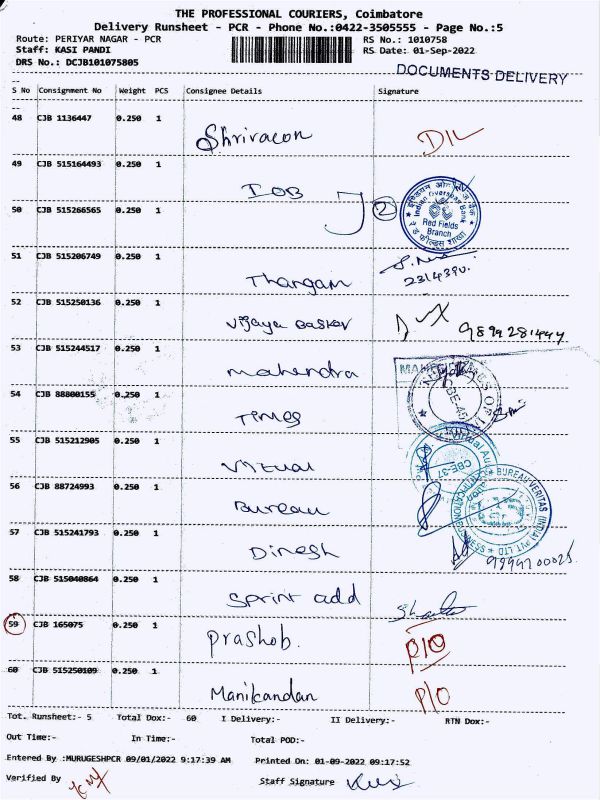 THE PROFESSIONAL COURIERS, Coimbatore
Delivery Runsheet - PCR - Phone No.:0422-3505555 - Page No.:5
Route: PERIYAR NAGAR - PCR RS No.: 1010758
Staff: KASI PANDI RS Date: 01-Sep-2022
DRS No.: DCJB101075805
DOCUMENTS DELIVERY
S No Consignment No Weight PCS Consignee Details Signature
48 CJB 1136447 0.250 1
Shrivacon D/L
49 CJB 515164493 0.250 1
IOB 2
इंडियन ओवरसीज़ बैंक
Indian Overseas Bank
Red Fields
Branch
50 CJB 515266565 0.250 1
51 CJB 515206749 0.250 1
Thangam 2314390.
52 CJB 515250136 0.250 1
Vijaya Baskar 9894281444
53 CJB 515244517 0.250 1
mahendra
54 CJB 88800155 0.250 1
TIMES
TIMES OF
CBE-45
55 CJB 515212905 0.250 1
virtual
Virtual
CBE-37
56 CJB 88724993 0.250 1
Bureau
BUREAU VERITAS (INDIA) PVT LTD
57 CJB 515241793 0.250 1
Dinesh
58 CJB 515040864 0.250 1
Sprint add
59 CJB 165075 0.250 1
prashob. P/O
60 CJB 515250109 0.250 1
Manikandan P/O
Tot. Runsheet:- 5 Total Dox:- 60 I Delivery:- II Delivery:- RTN Dox:-
Out Time:- In Time:- Total POD:-
Entered By :MURUGESHPCR 09/01/2022 9:17:39 AM Printed On: 01-09-2022 09:17:52
Verified By Staff Signature